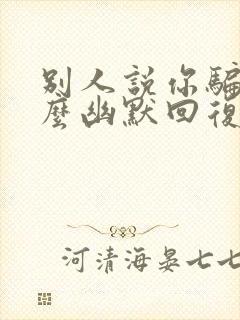 别人説你騙
麽幽默回復
河清海晏七七